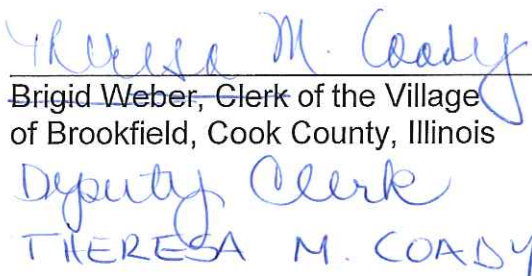 Theresa M. Coady
Brigid Weber, Clerk of the Village
of Brookfield, Cook County, Illinois
Deputy Clerk
THERESA M. COADY